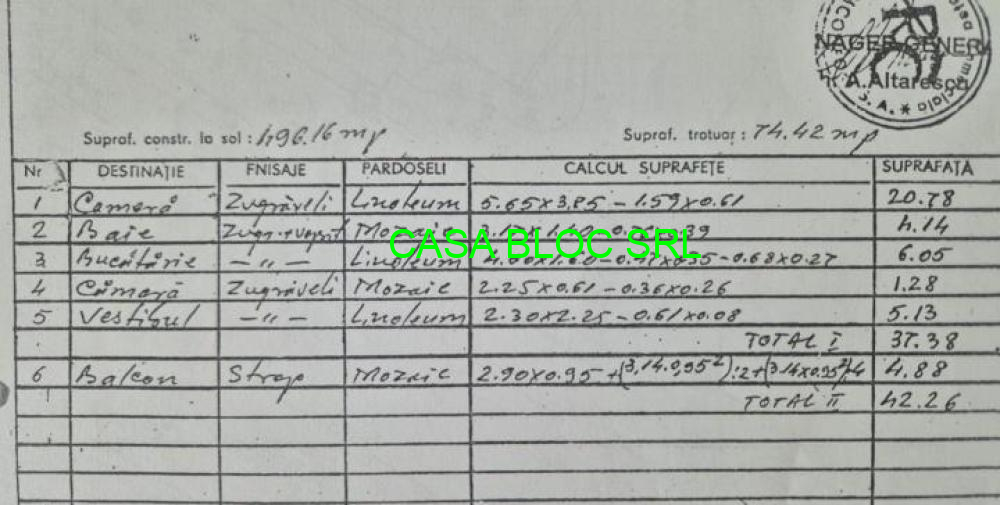 NAGER GENER
A.Altaresco
Supraf. constr. la sol : 496.16 mp Supraf. trotuar : 74.42 mp
Nr DESTINAȚIE FNISAJE PARDOSELI CALCUL SUPRAFEȚE SUPRAFAȚA
1 Cameră Zugrăveli Linoleum 5.65x3.85 - 1.59x0.61 20.78
2 Baie Mozaic 4.14
CASA BLOC SRL
3 Bucătărie - " - Linoleum - 0.68x0.27 6.05
4 Cămară Zugrăveli Mozaic 2.25x0.61 - 0.36x0.26 1.28
5 Vestibul - " - Linoleum 2.30x2.25 - 0.61x0.08 5.13
TOTAL I 37.38
6 Balcon Strop Mozaic 2.90x0.95 + (3,14.0,95²):2+(3.14x0.95²):4 4.88
TOTAL II 42.26